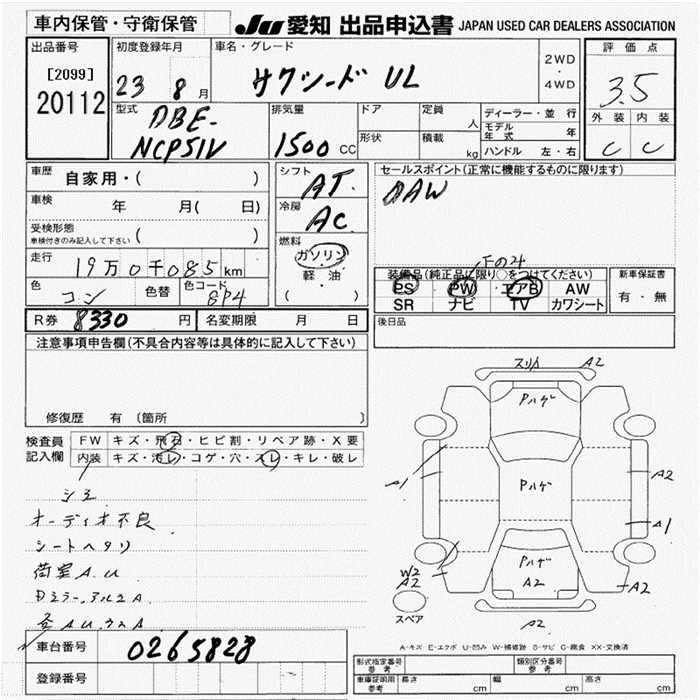 車内保管・守衛保管
JU 愛知 出品申込書 JAPAN USED CAR DEALERS ASSOCIATION
出品番号
[2099]
20112
初度登録年月
23 8月
車名・グレード
サクシード UL
2WD
・
4WD
評価点
3.5
外装 内装
C C
型式
DBE-
NCP51V
排気量
1500 CC
ドア
定員
人
形状
積載
kg
ディーラー・並行
モデル年式 年
ハンドル 左・右
車歴
自家用・( )
車検
年 月( 日)
受検形態
車検付きのみ記入して下さい ( )
走行
19万0千085 km
色
コン
色替
色コード
8P4
シフト
AT.
冷房
AC
燃料
ガソリン
軽・油
( )
セールスポイント(正常に機能するものに限ります)
AW
下の4
装備品(純正品に限り○をつけてください)
PS PW エアB AW
SR ナビ TV カワシート
新車保証書
有・無
R券 8330 円
名変期限 月 日
後日品
注意事項申告欄(不具合内容等は具体的に記入して下さい)
修復歴 有 〔箇所 〕
検査員記入欄
FW キズ・飛石・ヒビ割・リペア跡・X要
内装 キズ・汚レ・コゲ・穴・スレ・キレ・破レ
シミ
オーディオ不良
シートヘタリ
荷室A.U
スリ介 A2
Pハゲ
A1
Pハゲ
A2
A1
W2
A2
Pハゲ
A2
A2
スペア
A2
A-キズ E-エクボ U-凹み W-補修跡 S-サビ C-腐食 XX-交換済
車台番号
0265828
登録番号
形式指定番号
参考
類別区分番号
参考
車庫証明用
参考
長さ cm
幅 cm
高さ cm